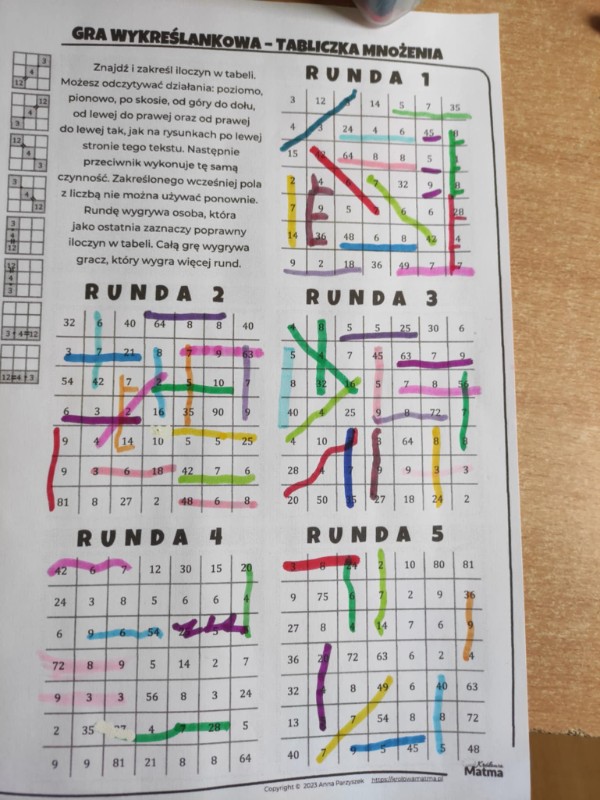 GRA WYKREŚLANKOWA – TABLICZKA MNOŻENIA
Znajdź i zakreśl iloczyn w tabeli.
Możesz odczytywać działania: poziomo,
pionowo, po skosie, od góry do dołu,
od lewej do prawej oraz od prawej
do lewej tak, jak na rysunkach po lewej
stronie tego tekstu. Następnie
przeciwnik wykonuje tę samą
czynność. Zakreślonego wcześniej pola
z liczbą nie można używać ponownie.
Rundę wygrywa osoba, która
jako ostatnia zaznaczy poprawny
iloczyn w tabeli. Całą grę wygrywa
gracz, który wygra więcej rund.
3 · 4 = 12
12 = 4 · 3
RUNDA 1
3 12 14 5 7 35
4 3 24 4 6 45 8
15 12 64 8 8 5
2 4 7 32 9 8
7 9 5 6 6 28
14 36 48 6 8 42 4
9 2 18 36 49 7 7
RUNDA 2
32 6 40 64 8 8 40
3 7 21 8 7 9 63
54 42 7 2 5 10 7
6 3 2 16 35 90 9
9 4 14 10 5 5 25
9 3 6 18 42 7 6
81 8 27 2 48 6 8
RUNDA 3
4 8 5 5 25 30 6
5 4 7 45 63 7 9
8 32 16 5 7 8 56
40 4 25 9 8 72 7
4 10 3 64 8 8
28 4 9 9 3 3
20 50 27 18 24 2
RUNDA 4
42 6 7 12 30 15 20
24 3 8 5 6 6 4
6 9 6 54
72 8 9 5 14 2 7
9 3 3 56 8 3 24
2 35 27 4 7 28 5
9 9 81 21 8 8 64
RUNDA 5
3 8 24 2 10 80 81
9 75 6 7 2 9 36
27 8 4 14 7 6 9
36 20 72 63 6 2 4
32 8 49 6 40 63
13 7 54 8 8 72
40 7 9 5 45 5 48
Copyright © 2023 Anna Parzyszek https://krolowamatma.pl
Królowa
Matma